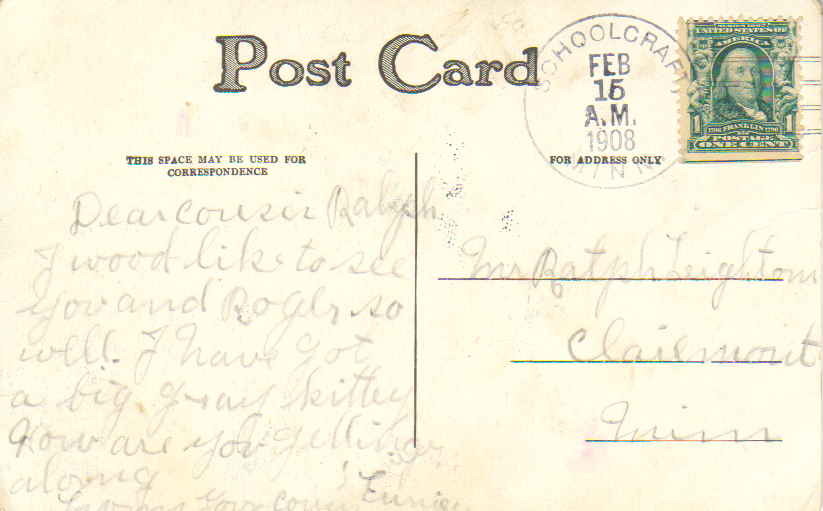 Post Card
SCHOOLCRAFT
FEB
15
A.M.
1908
MINN
UNITED STATES OF
AMERICA
1706 FRANKLIN 1790
1 POSTAGE 1
ONE CENT
THIS SPACE MAY BE USED FOR
CORRESPONDENCE
FOR ADDRESS ONLY
Dear cousin Ralph
I wood like to see
you and Roger so
well. I have got
a big gray kitty
How are you getting
along
from your cousin Eunice
Mr Ralph Leighton
Clairmont
Minn